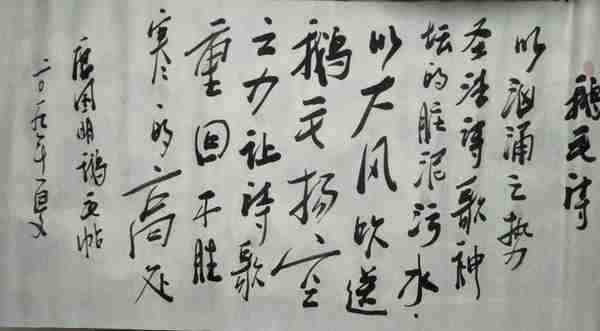 鹅毛诗
以汹涌之势
圣洁诗歌神
坛的脏泥污水
以大风吹送
鹅毛扬空
之力让诗歌
重回不胜
寒的高处
唐国明鹅毛帖
二〇一九年夏